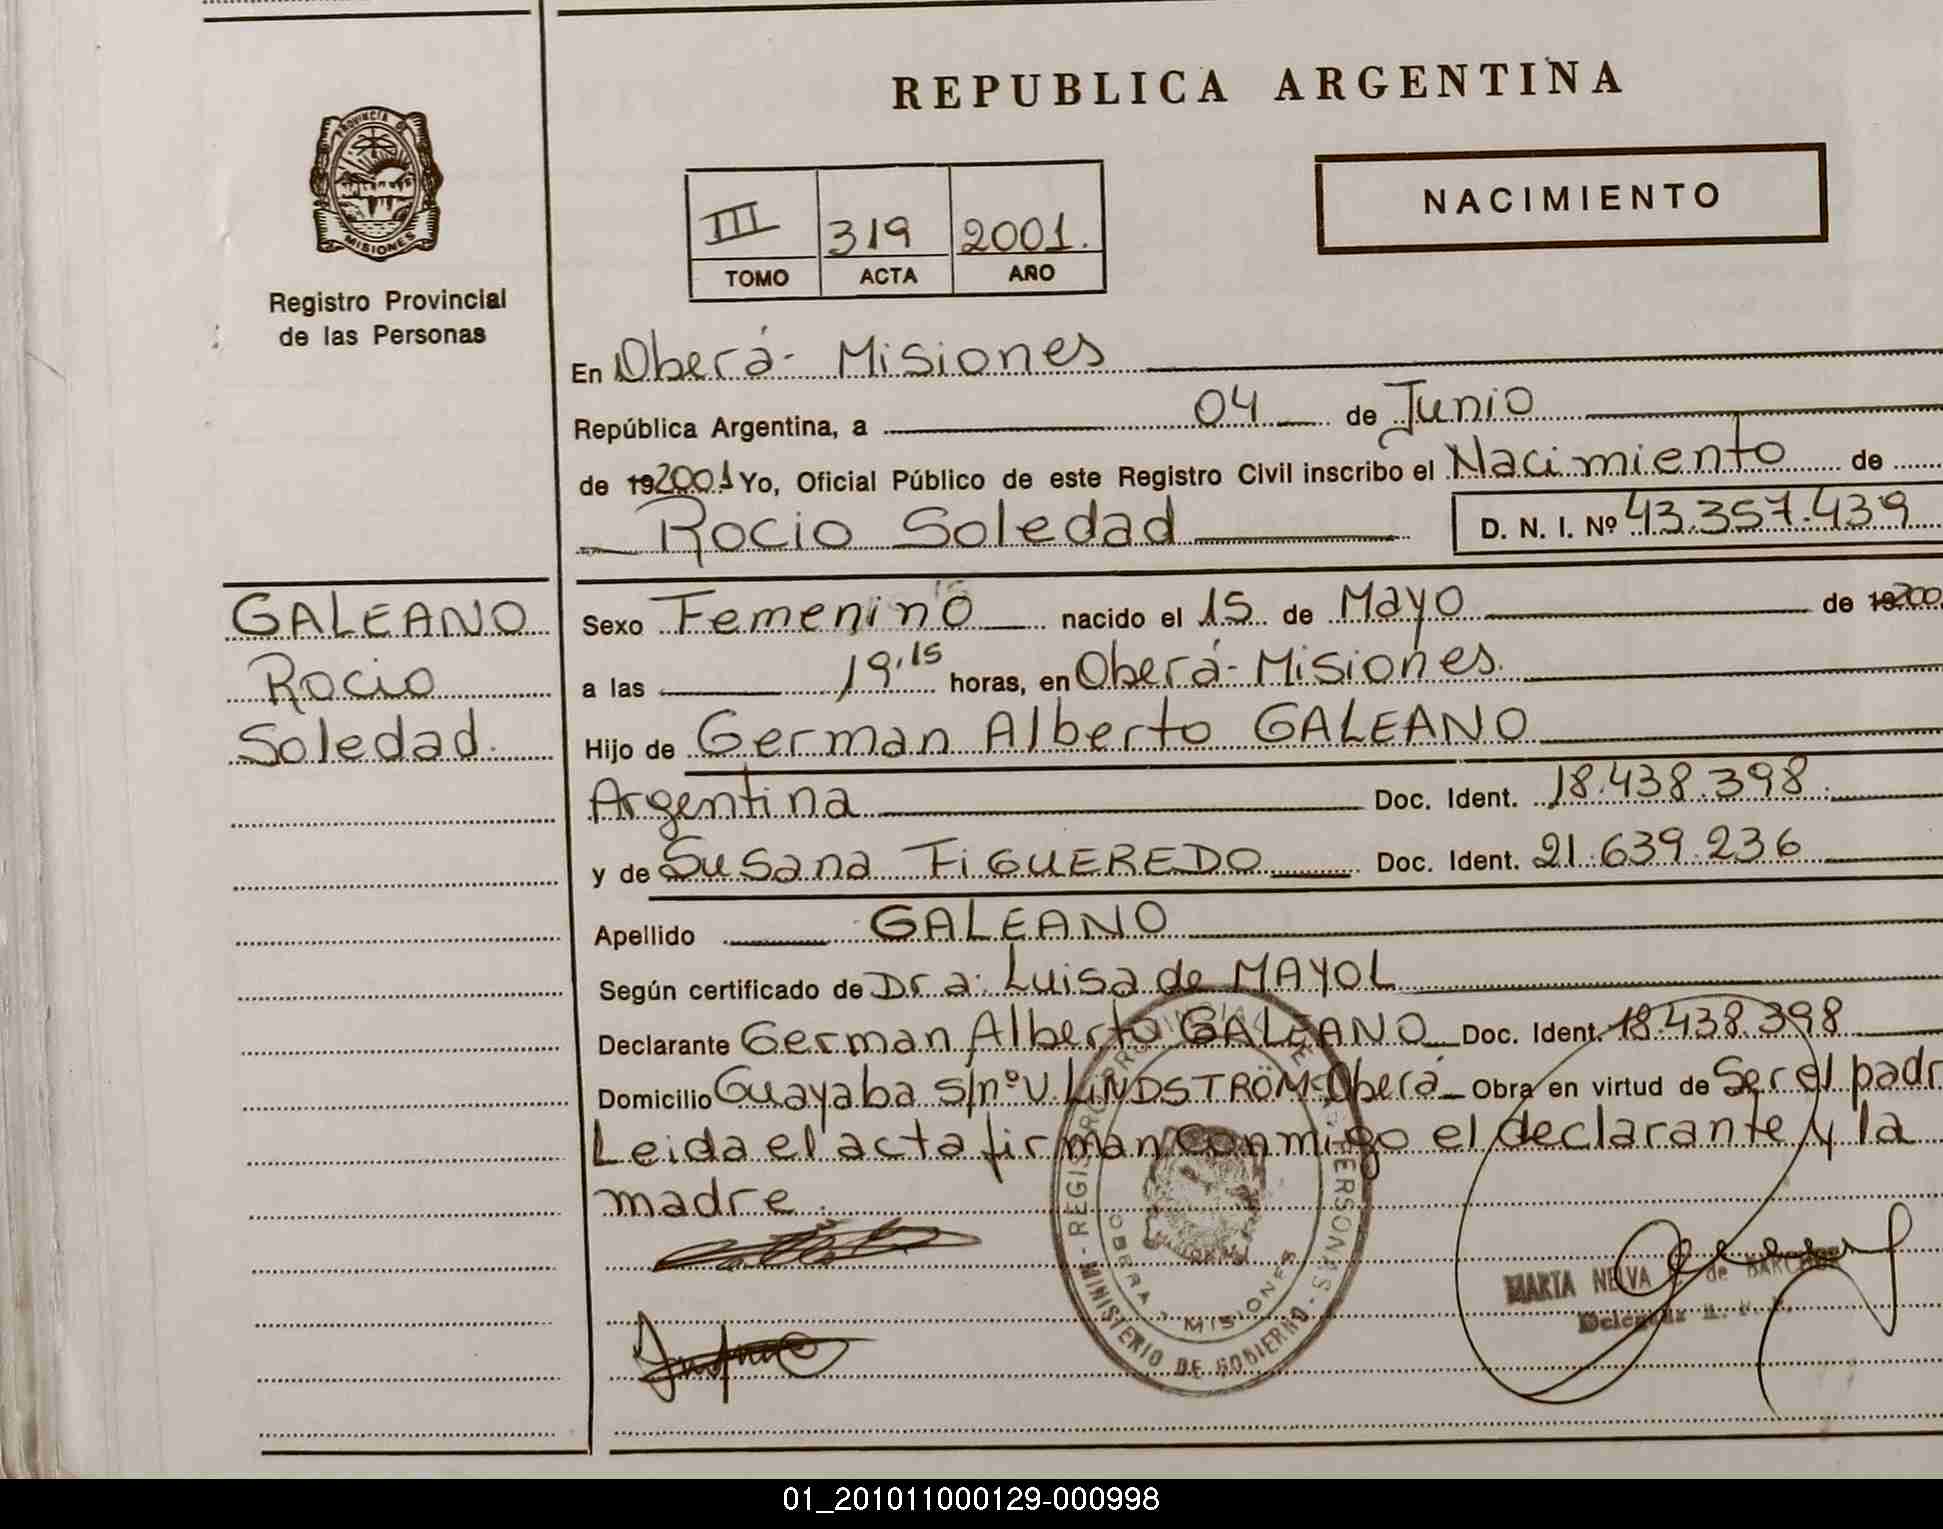 REPUBLICA ARGENTINA
PROVINCIA DE
MISIONES
Registro Provincial
de las Personas
NACIMIENTO
III 319 2001.
TOMO ACTA AÑO
En Oberá- Misiones
República Argentina, a 04 de Junio
de 192001 Yo, Oficial Público de este Registro Civil inscribo el Nacimiento de
Rocio Soledad D. N. I. Nº 43.357.439
GALEANO
Rocio
Soledad.
Sexo Femenino nacido el 15 de Mayo de 19200
a las 19,15 horas, en Oberá-Misiones.
Hijo de German Alberto GALEANO
Argentina Doc. Ident. 18.438.398.
y de Susana FIGUEREDO Doc. Ident. 21.639.236
Apellido GALEANO
Según certificado de Dra. Luisa de MAYOL
Declarante German Alberto GALEANO Doc. Ident. 18.438.398
Domicilio Guayaba s/nº V. LINDSTRÖM-Oberá Obra en virtud de Ser el padr
Leida el acta firman conmigo el declarante y la
madre.
REGISTRO PROVINCIAL DE PERSONAS - MINISTERIO DE GOBIERNO
OBERA - MISIONES
MARIA NELVA de
Delegada
01_201011000129-000998